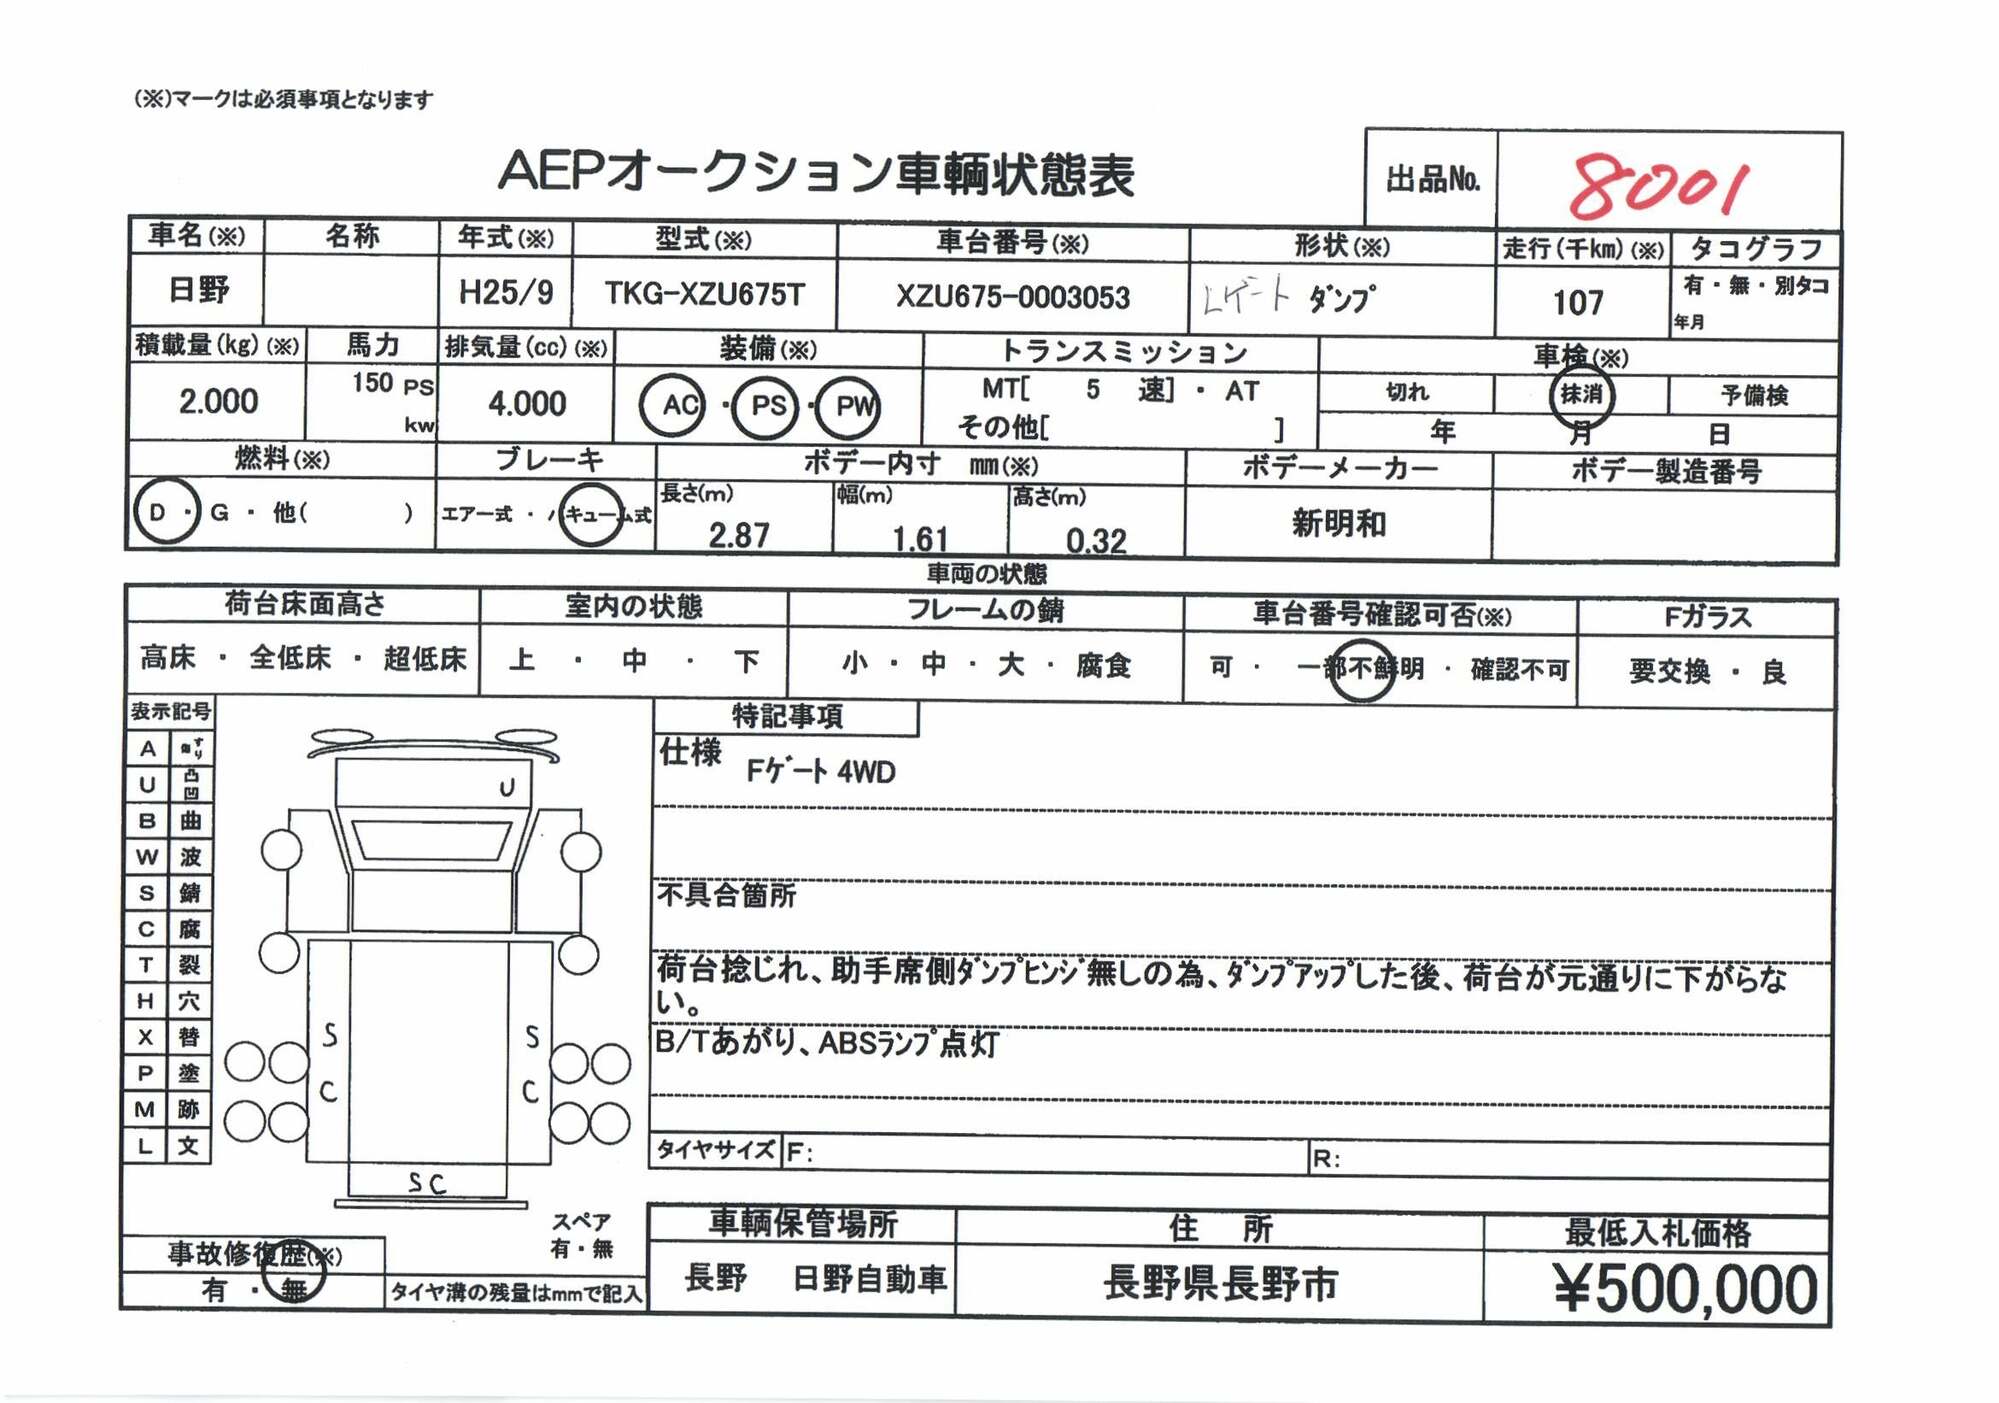 (※)マークは必須事項となります
AEPオークション車輌状態表
出品No.
8001
車名(※) 名称 年式(※) 型式(※) 車台番号(※) 形状(※) 走行(千km)(※) タコグラフ
日野 H25/9 TKG-XZU675T XZU675-0003053 Lゲート ﾀﾞﾝﾌﾟ 107 有・無・別タコ
年月
積載量(kg)(※) 馬力 排気量(cc)(※) 装備(※) トランスミッション 車検(※)
2.000 150 PS 4.000 AC・PS・PW MT[ 5 速]・AT 切れ 抹消 予備検
kw その他[ ] 年 月 日
燃料(※) ブレーキ ボデー内寸 mm(※) ボデーメーカー ボデー製造番号
D・G・他( ) エアー式・バキューム式 長さ(m) 幅(m) 高さ(m) 新明和
2.87 1.61 0.32
車両の状態
荷台床面高さ 室内の状態 フレームの錆 車台番号確認可否(※) Fガラス
高床・全低床・超低床 上・中・下 小・中・大・腐食 可・一部不鮮明・確認不可 要交換・良
表示記号
A すり傷
U 凸凹
B 曲
W 波
S 錆
C 腐
T 裂
H 穴
X 替
P 塗
M 跡
L 文
U
S S
C C
SC
スペア
有・無
事故修復歴(※)
有・無
タイヤ溝の残量はmmで記入
特記事項
仕様 Fｹﾞｰﾄ 4WD
不具合箇所
荷台捻じれ、助手席側ﾀﾞﾝﾌﾟﾋﾝｼﾞ無しの為、ﾀﾞﾝﾌﾟｱｯﾌﾟした後、荷台が元通りに下がらな
い。
B/Tあがり、ABSﾗﾝﾌﾟ点灯
タイヤサイズ F: R:
車輌保管場所 住 所 最低入札価格
長野 日野自動車 長野県長野市 ¥500,000